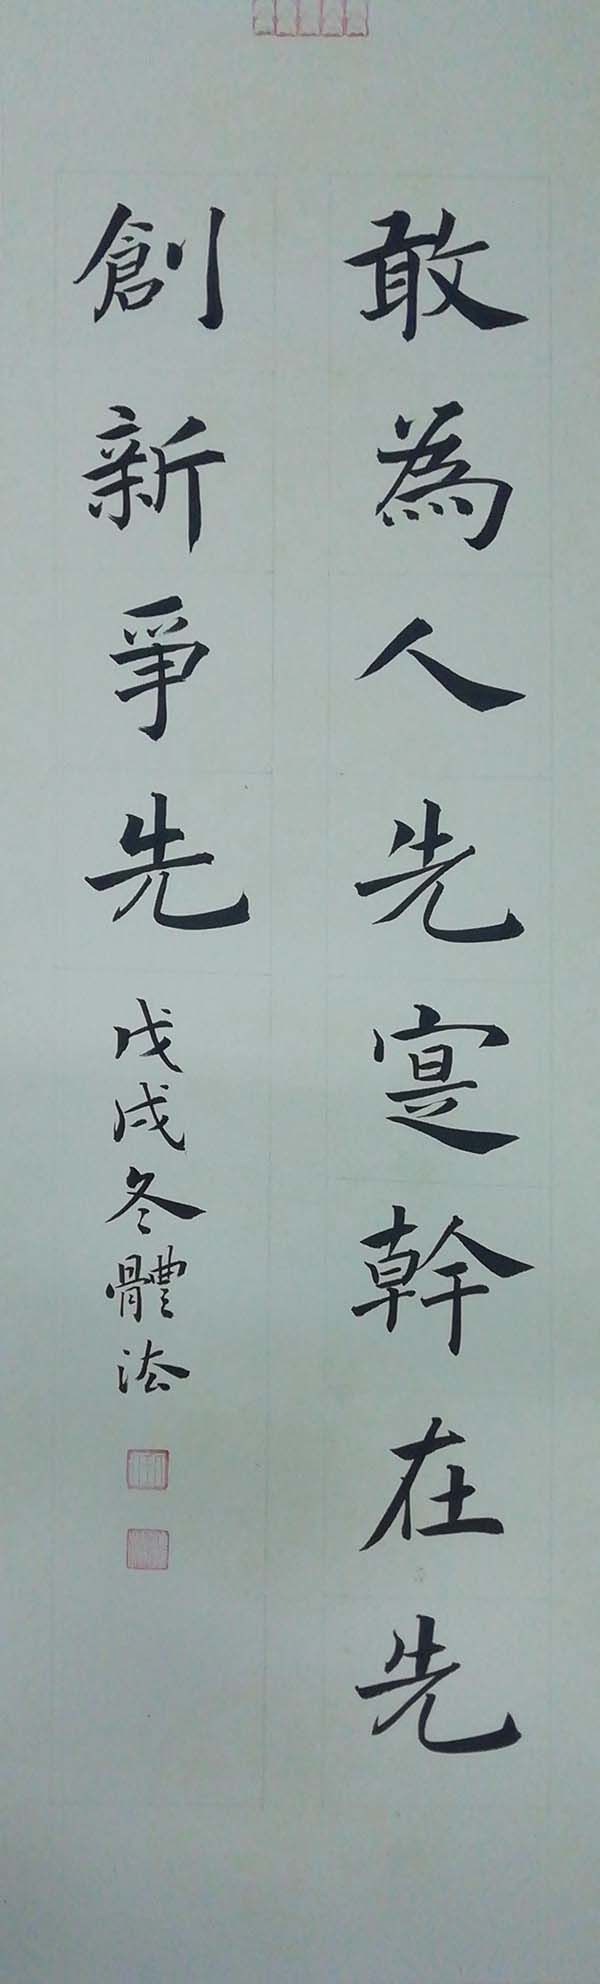 敢為人先寔幹在先
創新爭先
戊戌冬體法